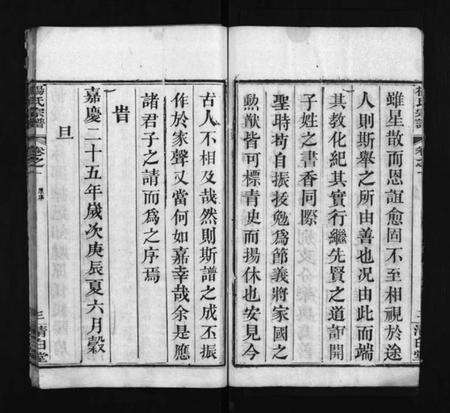 雖星散而恩誼愈固不至相視於途
人則斯舉之所由善也况由此而端
其教化紀其實行繼先賢之道諠開
子姓之書香同際
聖時苟自振拔勉為節義將家國之
勲猷皆可標青史而揚休也安見今
楊氏宗譜
卷之一
原序
三
清白堂
古人不相及哉然則斯譜之成丕振
作於家聲又當何如嘉幸哉余是應
諸君子之請而為之序焉
旹
嘉慶二十五年歲次庚辰夏六月穀
旦